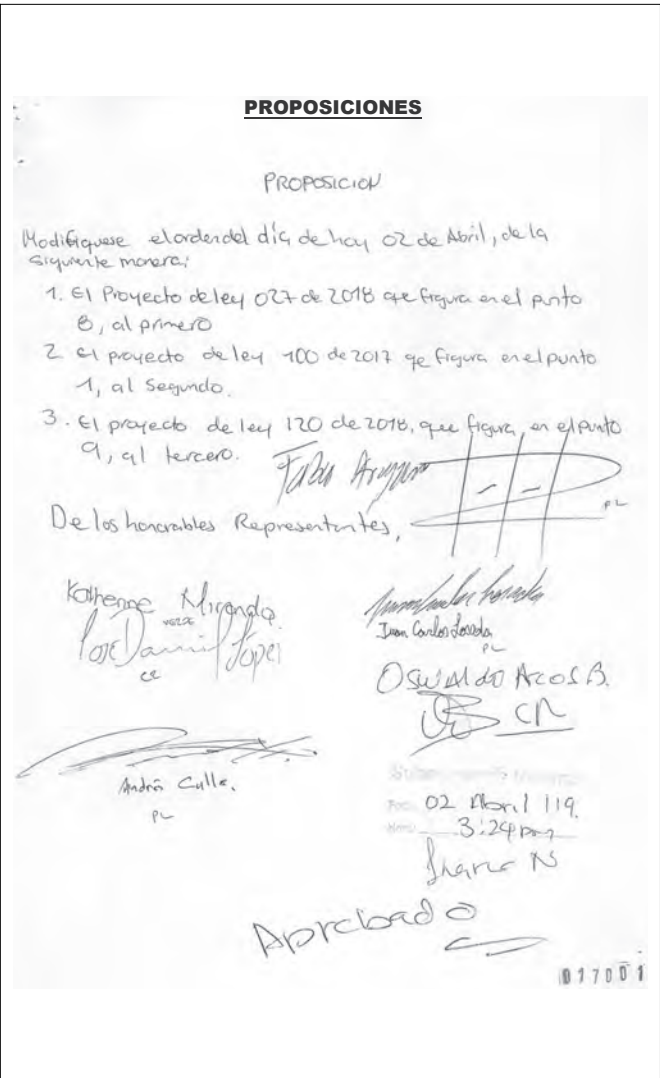 PROPOSICIONES
PROPOSICION
Modifiquese el orden del día de hoy 02 de Abril, de la
siguiente manera:
1. El Proyecto de ley 027 de 2018 que figura en el punto
8, al primero
2 El proyecto de ley 100 de 2017 qe figura en el punto
1, al Segundo.
3. El proyecto de ley 120 de 2018, que figura, en el punto
9, al tercero.
De los honorables Representantes,
PL
Katherine Miranda
Juan Carlos Losada
PL
Jose Daniel López
CR
Oswaldo Arcos B.
CR
Andrés Calle.
PL
02 Abril 119.
3:24 pm
Aprobado
017001